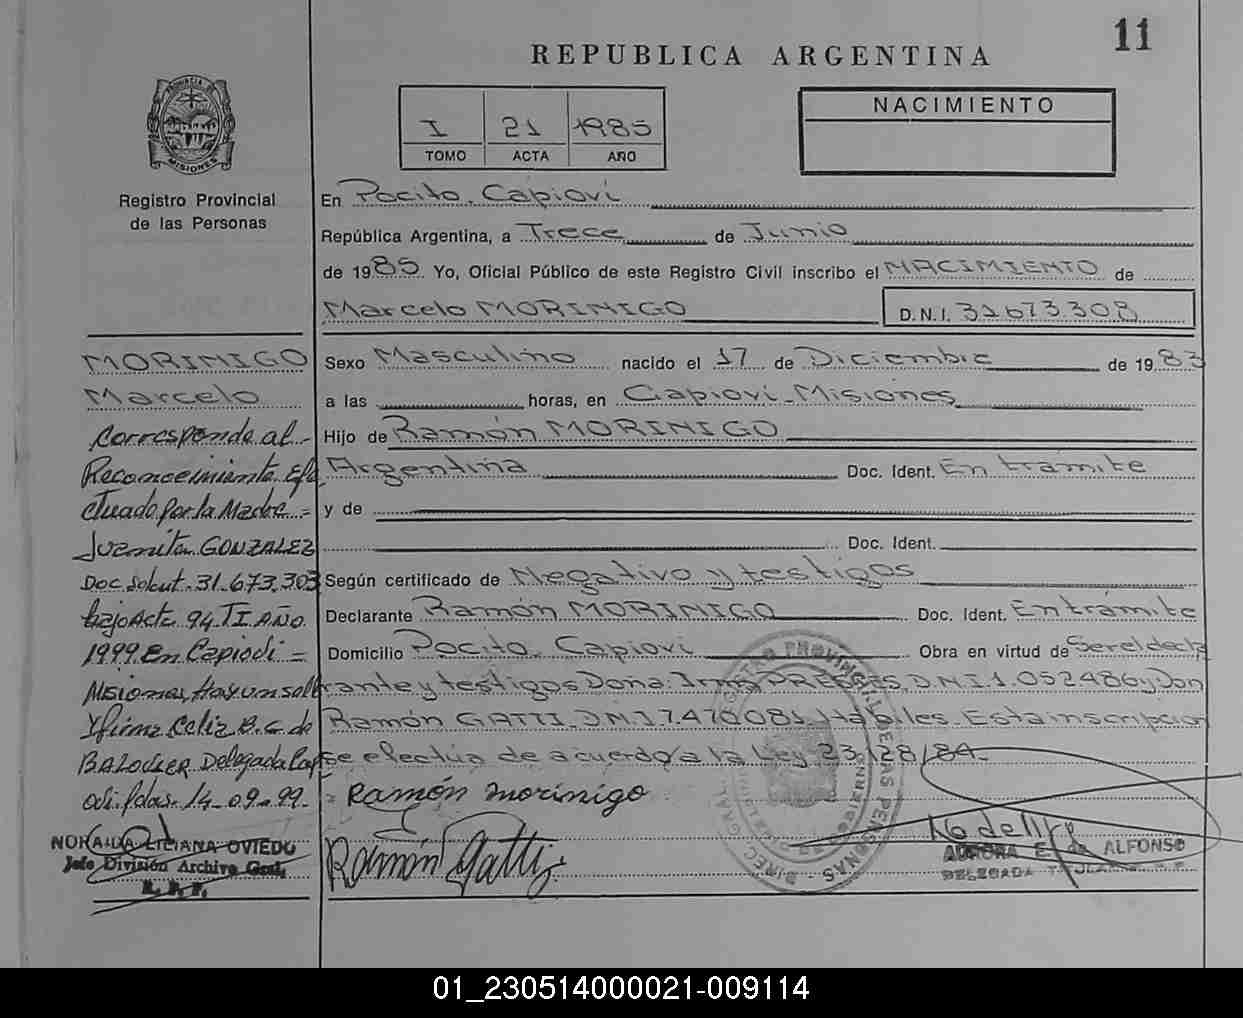 11
REPUBLICA ARGENTINA
PROVINCIA DE
MISIONES
Registro Provincial
de las Personas
I 21 1985
TOMO ACTA AÑO
NACIMIENTO
En Pocito. Capioví
República Argentina, a Trece de Junio
de 1985. Yo, Oficial Público de este Registro Civil inscribo el NACIMIENTO de
Marcelo MORINIGO D.N.I. 31673308
Sexo Masculino nacido el 17 de Diciembre de 1983
a las horas, en Capioví - Misiones
Hijo de Ramón MORINIGO
Argentina Doc. Ident. En trámite
y de
Doc. Ident.
Según certificado de Negativo y testigos
Declarante Ramón MORINIGO Doc. Ident. En trámite
Domicilio Pocito. Capioví Obra en virtud de Ser el decla
rante y testigos Doña: D.N.I 1.052486 y Don
Ramón GATTI D.N.I 7.476081 Hábiles. Esta inscripción
se efectúa de acuerdo a la Ley 23.128/84.
Ramón morinigo
Ramón Gatti
AURORA E. de ALFONSO
DELEGADA TITULAR
MORINIGO
Marcelo
Corresponde al
Reconocimiento Efe
ctuado por la Madre =
Juanita GONZALEZ
Doc. 31.673.303
bajo Acta 94. T I. AÑO.
1999. En Capiovi =
Misiones, Hay un sell
y firma Celia B. G. de
BALOCHER Delegada Cap
ovi. Pdas. 14-09-99.
NORAIDA LILIANA OVIEDO
Jefe División Archivo Gral.
R. P. P.
01_230514000021-009114